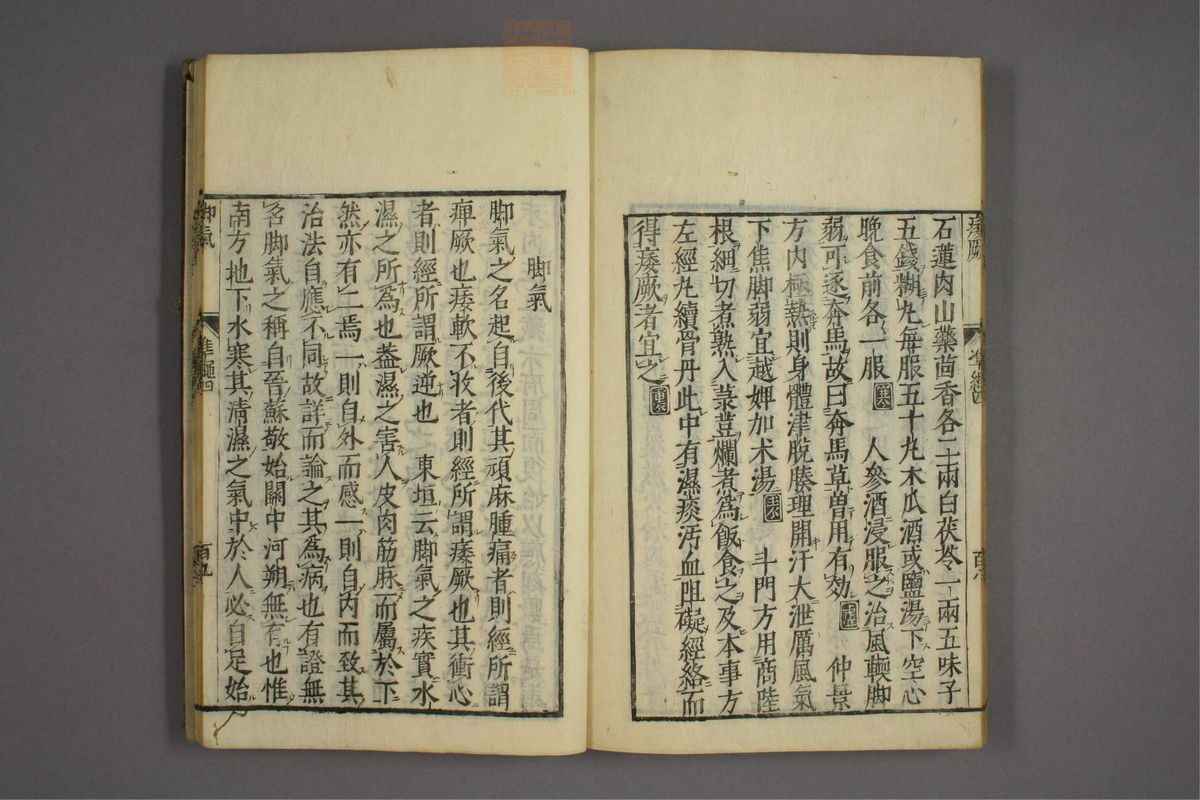 石蓮肉山藥茴香各二兩白茯苓一兩五味子
五錢糊丸每服五十丸木瓜酒或鹽湯下空心
晚食前各一服　人參酒浸服之治風輭脚
弱可逐奔馬故曰奔馬草曾用有効　仲景
方內極熱則身體津脫腠理開汗大泄厲風氣
下焦脚弱宜越婢加术湯　斗門方用商陸
根細切煮熟入菉荳爛煮為飯食之及本事方
左經丸續骨丹此中有濕痰汚血阻礙經絡而
得痿厥者宜之
脚氣
脚氣之名起自後代其頑麻腫痛者則經所謂
痺厥也痿軟不收者則經所謂痿厥也其衝心
者則經所謂厥逆也　東垣云脚氣之疾實水
濕之所為也葢濕之害人皮肉筋脉而屬於下
然亦有二焉一則自外而感一則自內而致其
治法自應不同故詳而論之其為病也有證無
名脚氣之稱自晉蘇敬始關中河朔無有也惟
南方地下水寒其清濕之氣中於人必自足始
脚氣
百九